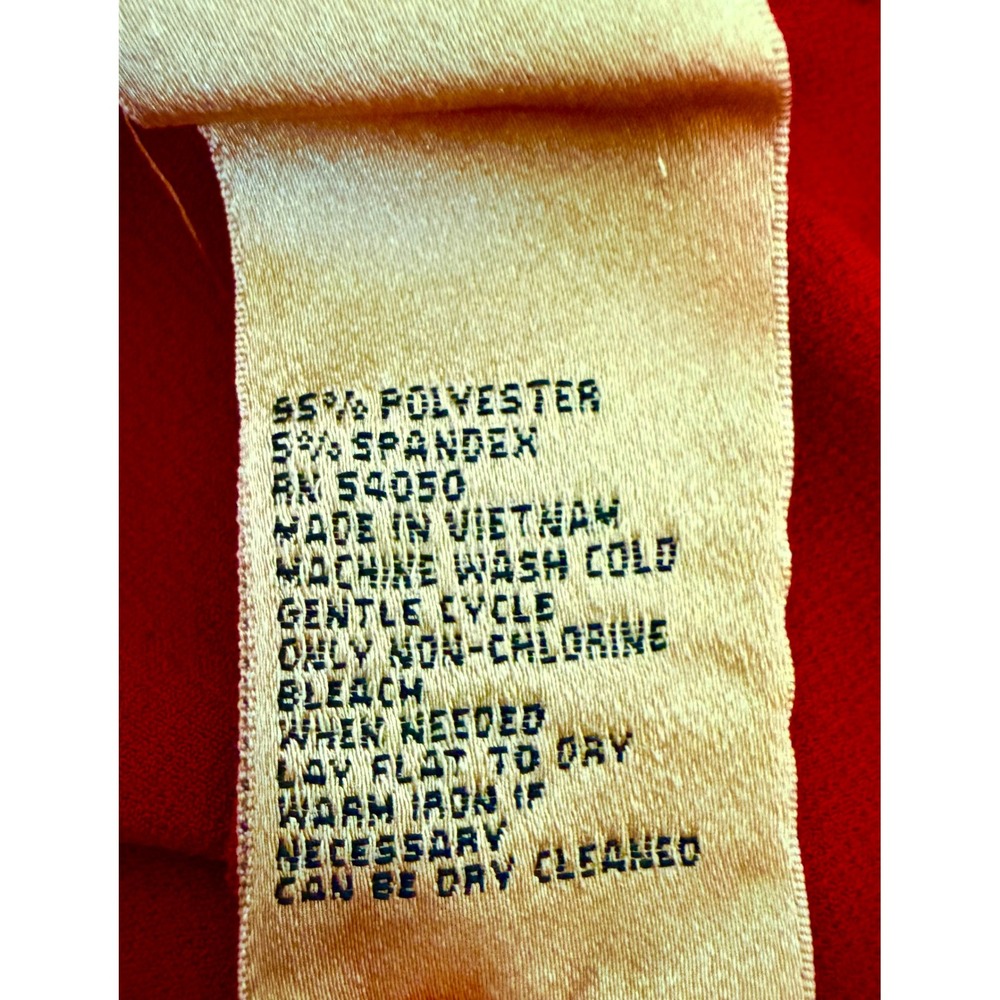 95% POLYESTER
5% SPANDEX
RN 54050
MADE IN VIETNAM
MACHINE WASH COLD
GENTLE CYCLE
ONLY NON-CHLORINE
BLEACH
WHEN NEEDED
LAY FLAT TO DRY
WARM IRON IF
NECESSARY
CAN BE DRY CLEANED